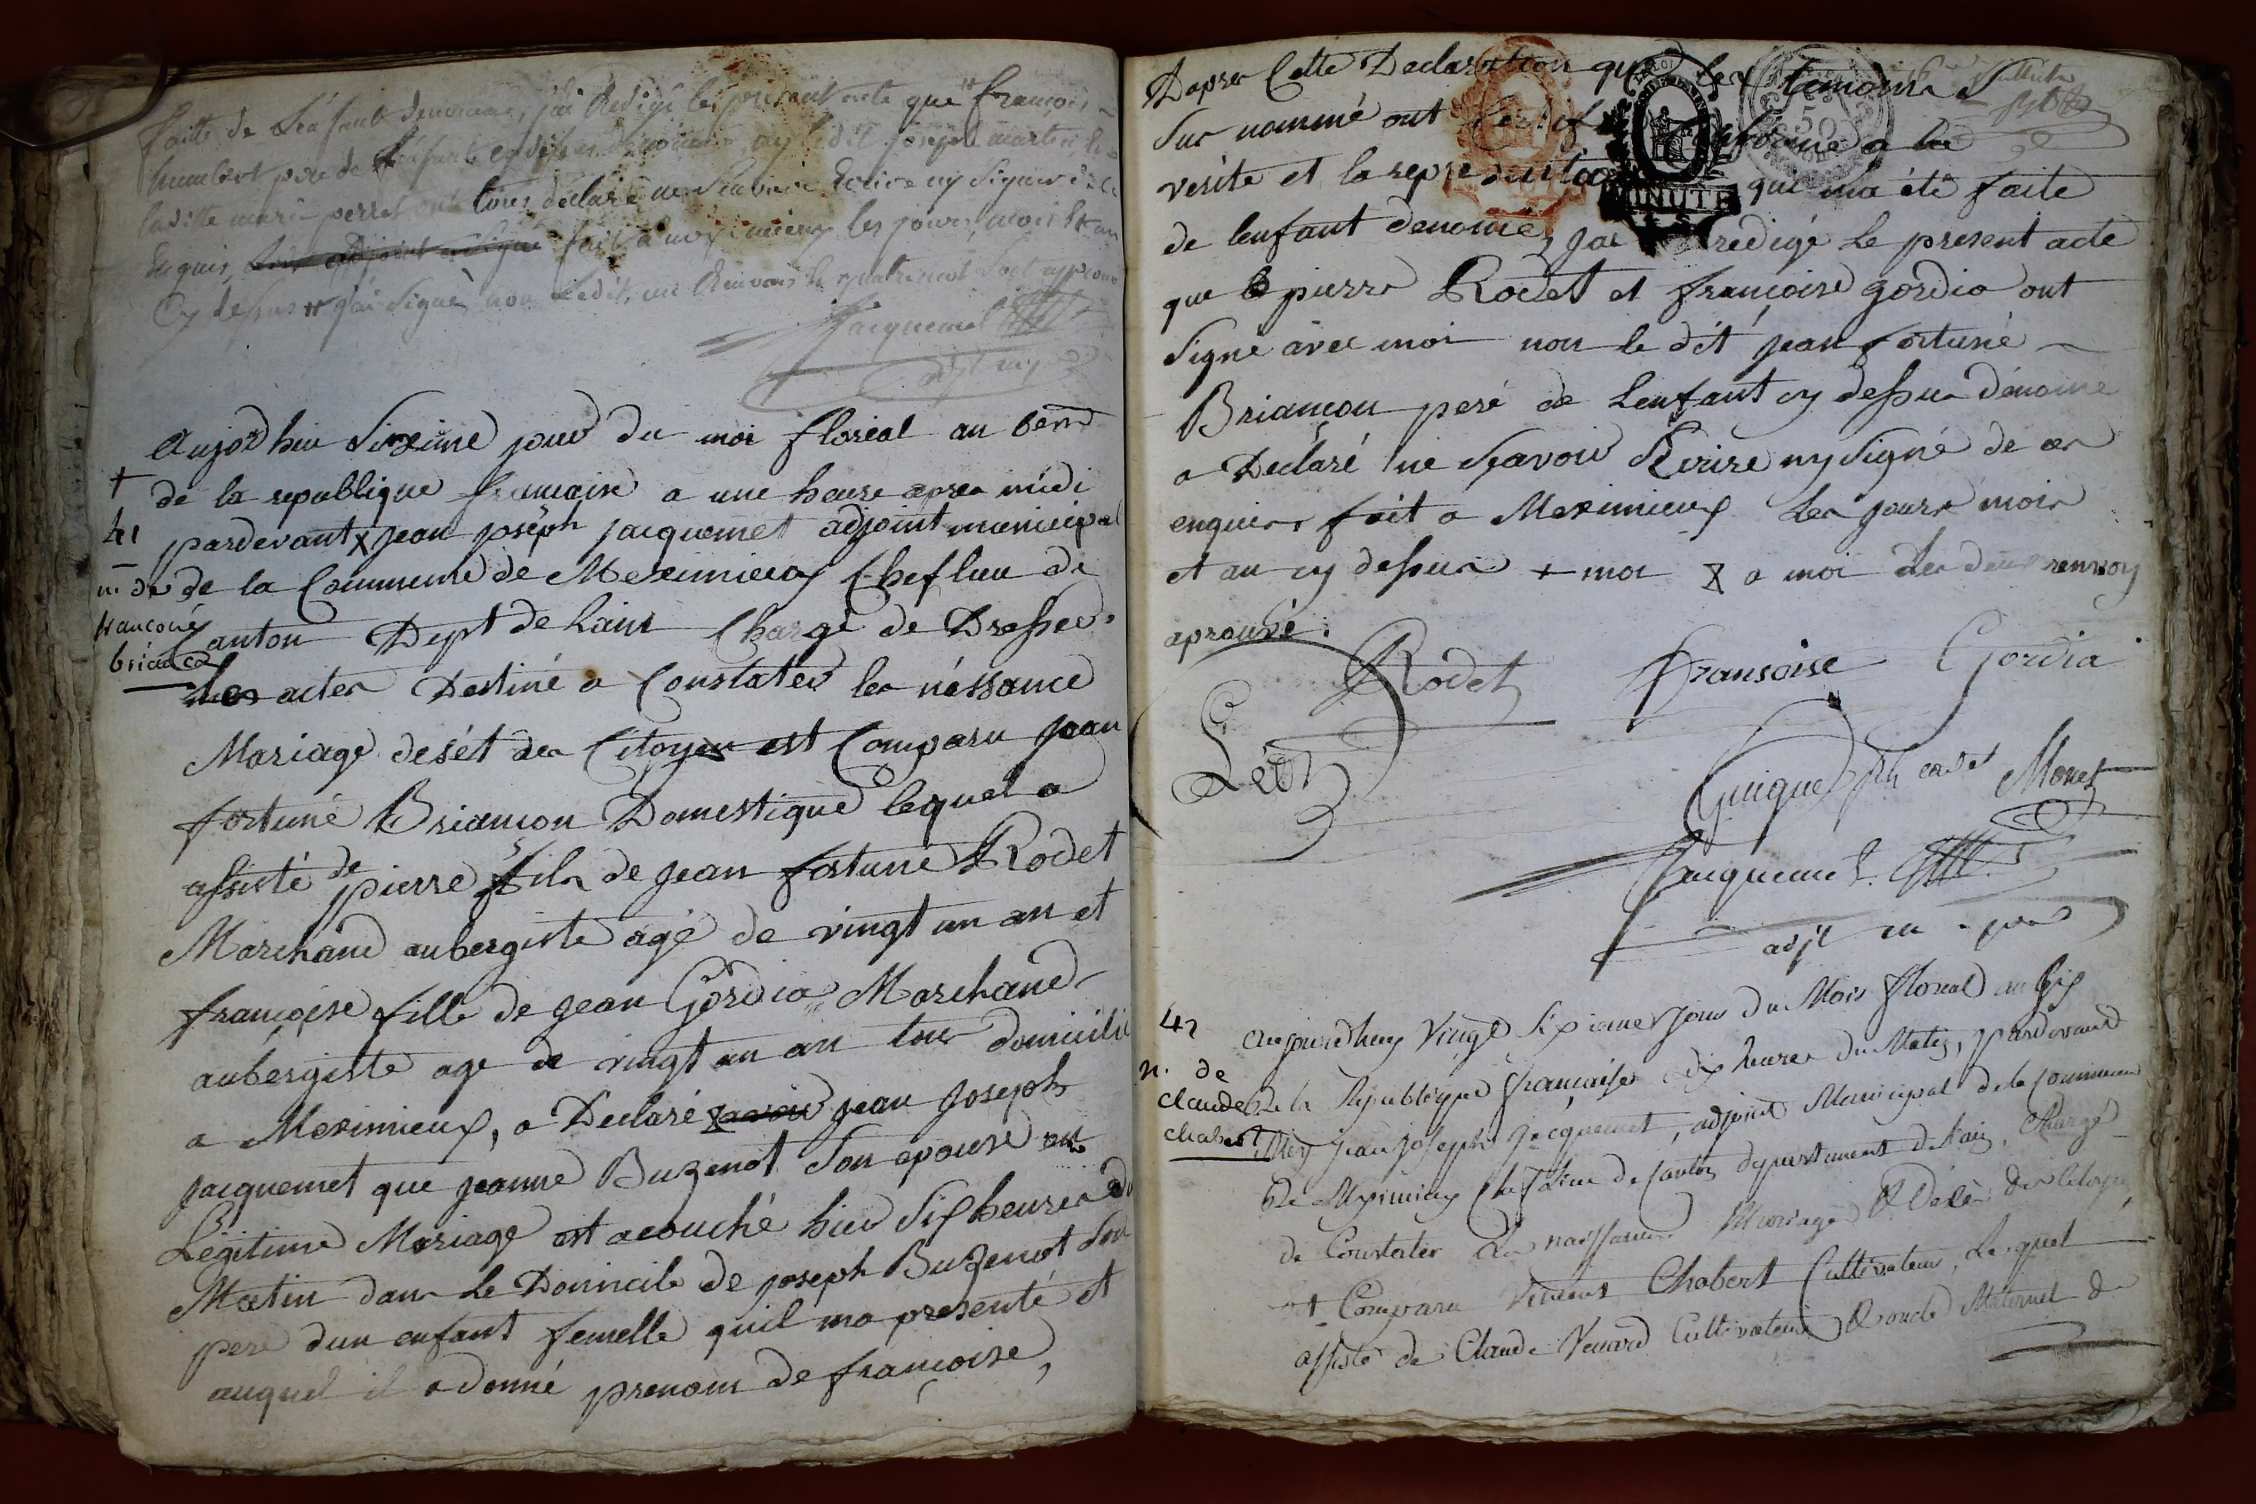 faitte de L'enfant denommé, j'ai Redigé le présent acte que # françois
humbert pere de l'enfant cy dessus denommé, ny ledit joseph martin ny
laditte marie perret ont tous déclaré ne Scavoir Ecrire ny Signer de ce
Enquis, fait a meximieux les jour, mois & an
Cy dessus # j'ai Signé non ledit, un Renvois
Jacquemet
adjt
aujordhui Sixieme jour du moi floréal an 6em
+ de la republique francaise a une heure apres midi
41 pardevant x jean joseph jacquemet adjoint municipal
n. de de la Commune de Meximieux Chef lieu de
francoise Canton Dept de Lain Chargé de Dresser
briancon
les actes Destiné a Constater les néssance
Mariage desét des Citoyen est Comparu jean
fortuné Briançon Domestique lequel a
assisté de pierre fils de jean fortuné Rodet
Marchand aubergiste agé de vingt un an et
françoise fille de jean Gordia Marchand
aubergiste age de vingt un an tous domicilié
a Meximieux, a Declaré x avoir jean Joseph
jacquemet que jeanne Buzenot Son epouse en
Légitime Mariage est acouché hier Six heures du
Matin dans Le Domicile de joseph Buzenot Son
pere dun enfant femelle quil ma presenté et
auquel il a donné prenom de françoise,
Dapres Cette Declaration que les temoins
Sus nommé ont Certif Conforme a la
verite et la representation qui ma été faite
de lenfant denomé, jai redigé le present acte
que pierre Rodet et françoise gordia ont
Signé avec moi non le dit jean fortuné
Briançon peré de Lenfant cy dessus dénomé
a Déclaré ne Sçavoir Ecrire ny Signé de ce
enquis, fait a Meximieux Les jours mois
et an cy dessus + moi x a moi Les deux renvoy
aprouvé.
Rodet fransoise Gordia
Léon
Guigue ph cadet Monet
Jacquemet
adjt
42 aujourdhuy Vingt Sixieme jour du Mois floreal an Six
n. de
claude De la Republique française dix heures du Matin, pardevant
chabert Moy jean joseph jacquemet, adjoint Municipal de la Commune
De Meximieux Chef Lieu de Canton departement de Lain, Chargé
de Constater Les naissances Mariages & Décès des Citoyens,
est Comparu Vincent Chabert Cultivateur, Lequel
assisté de Claude Venard Cultivateur & oncle Maternel de